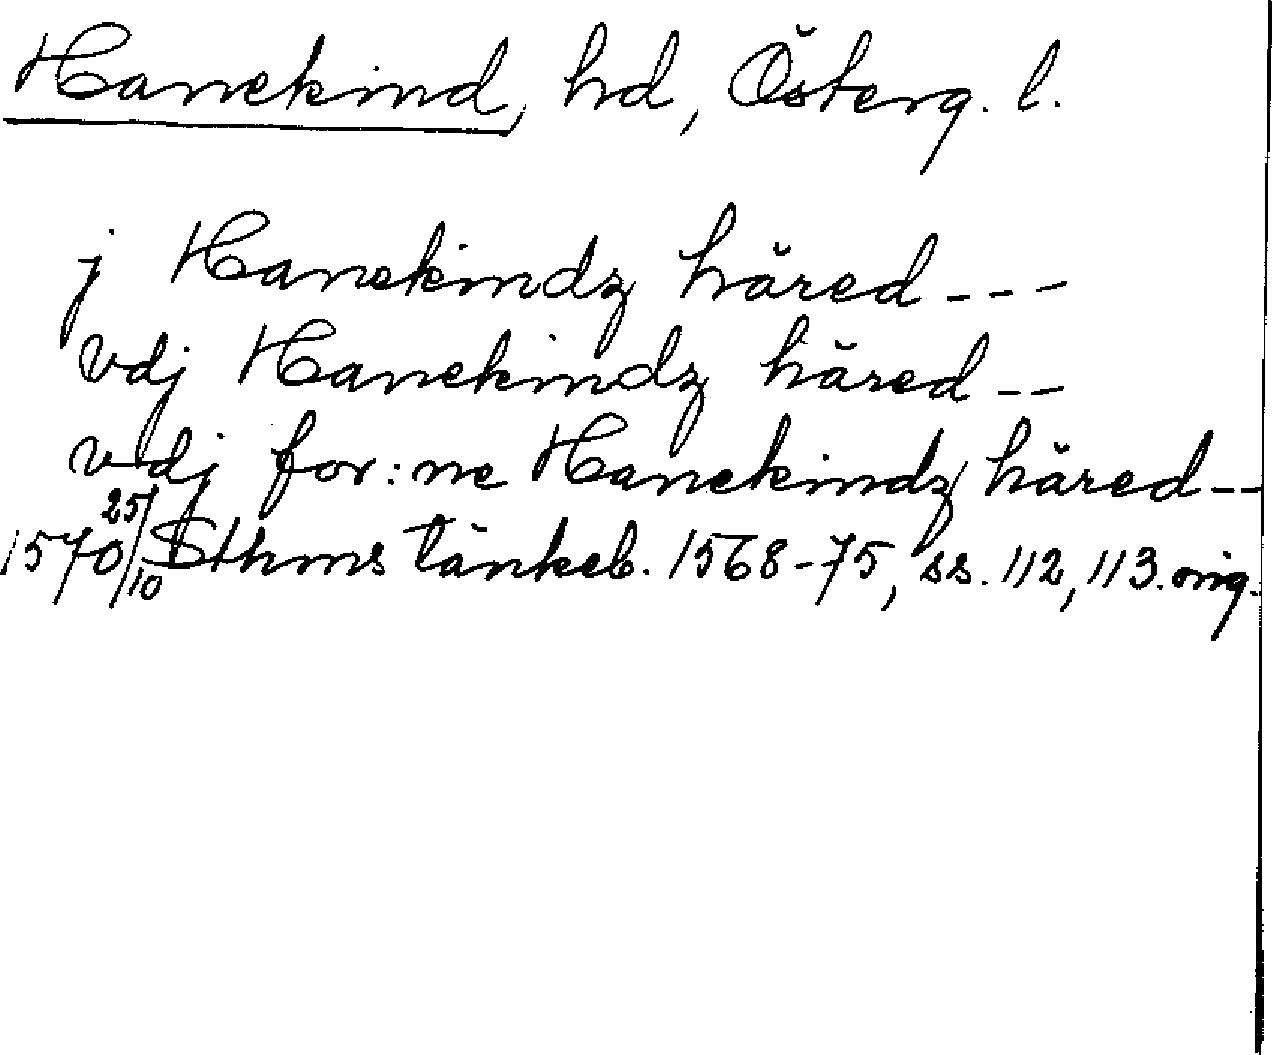 Hanekind, hd, Österg. l.
j Hanekindz häred---
vdj Hanekindz häred--
vdj for:ne Hanekindz häred--
1570 25/10 Sthms tänkeb. 1568-75, ss. 112, 113. orig.